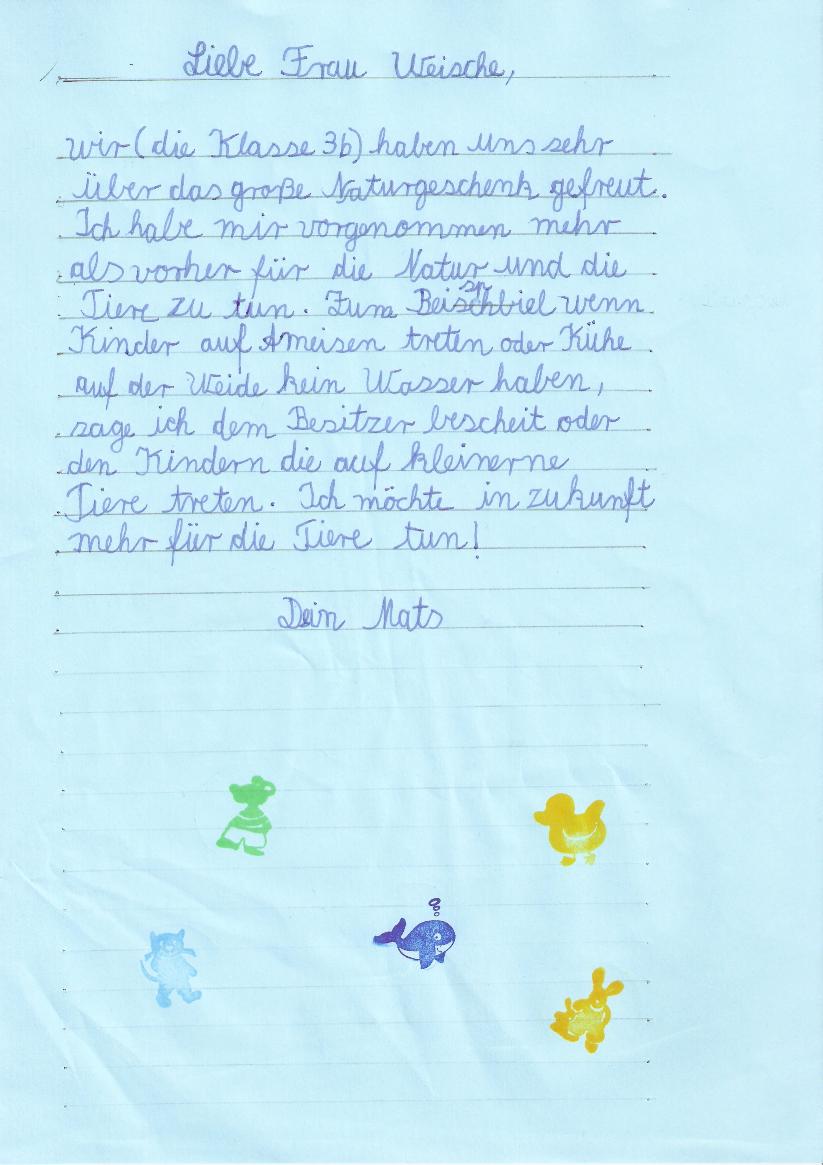 Liebe Frau Weische,
wir (die Klasse 3b) haben uns sehr
über das große Naturgeschenk gefreut.
Ich habe mir vorgenommen mehr
als vorher für die Natur und die
Tiere zu tun. Zum Beispbiel wenn
Kinder auf Ameisen treten oder Kühe
auf der Weide kein Wasser haben,
sage ich dem Besitzer bescheit oder
den Kindern die auf kleinerne
Tiere treten. Ich möchte in zukunft
mehr für die Tiere tun!
Dein Mats